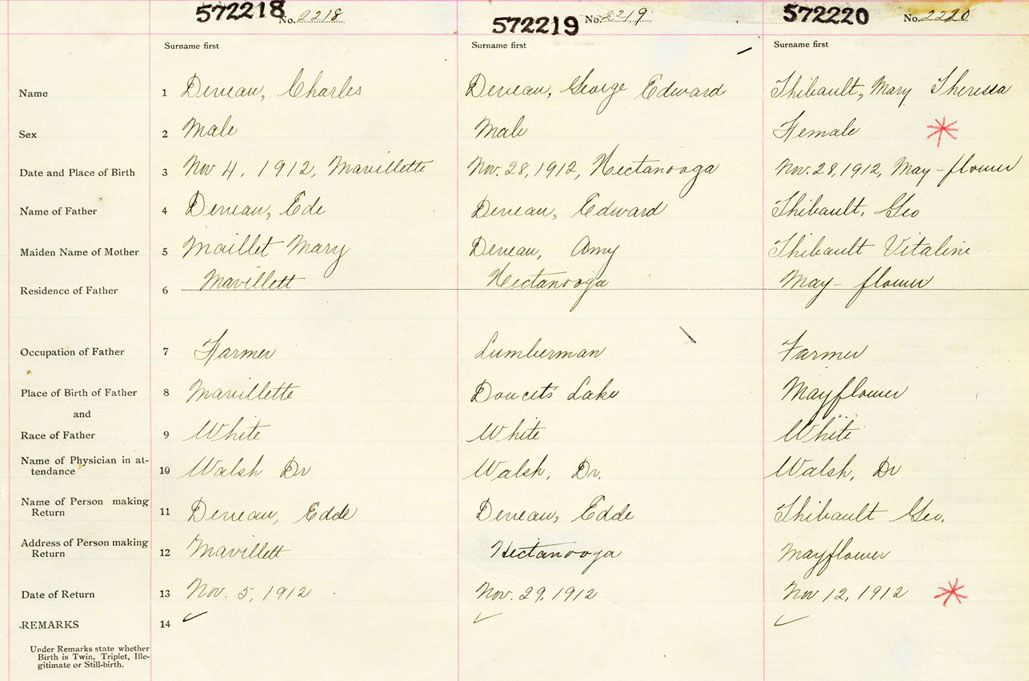 572218 No. 2218 572219 No. 2219 572220 No. 2220
Surname first Surname first Surname first
Name 1 Deveau, Charles Deveau, George Edward Thibault, Mary Theressa
Sex 2 Male Male Female
Date and Place of Birth 3 Nov 4, 1912, Mavillette Nov. 28, 1912, Hectanooga Nov. 28, 1912, May-flower
Name of Father 4 Deveau, Ede Deveau, Edward Thibault, Geo
Maiden Name of Mother 5 Maillet Mary Deveau, Amy Thibault Vitaline
Residence of Father 6 Mavillett Hectanooga May-flower
Occupation of Father 7 Farmer Lumberman Farmer
Place of Birth of Father 8 Mavillette Doucets Lake Mayflower
and
Race of Father 9 White White White
Name of Physician in at-
tendance 10 Walsh Dr Walsh, Dr. Walsh, Dr
Name of Person making
Return 11 Deveau, Edde Deveau, Edde Thibault Geo.
Address of Person making
Return 12 Mavillett Hectanooga Mayflower
Date of Return 13 Nov. 5, 1912 Nov. 29, 1912 Nov 12, 1912
REMARKS 14
Under Remarks state whether
Birth is Twin, Triplet, Ille-
gitimate or Still-birth.